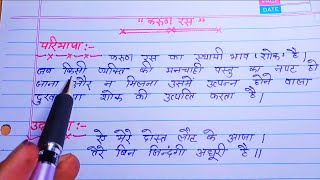 PAGE
DATE
" करुण रस "
परिभाषा :-
करुण रस का स्थायी भाव 'शोक' है।
जब किसी व्यक्ति की मनचाही वस्तु का नष्ट हो
जाना और न मिलना उससे उत्पन्न होने वाला
शोक की उत्पत्ति करता है।
ऐ मेरे दोस्त लौट के आजा।
तेरे बिन जिन्दगी अधूरी है।।